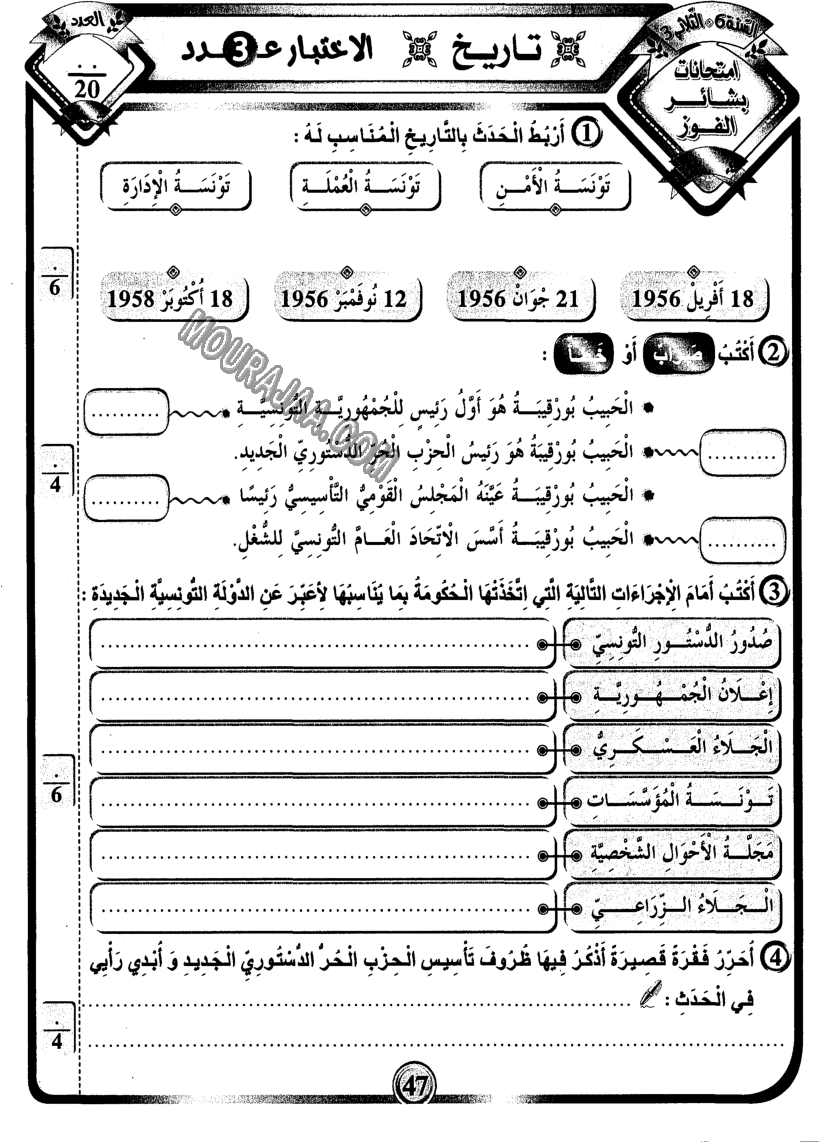 السّنة 6 • الثّلاثي 3
امتحانات
بشائر
الفوز
تاريخ
الاختبار عـ3ـدد
العدد
20
1 أَرْبُطُ الْحَدَثَ بِالتَّارِيخِ الْمُنَاسِبِ لَهُ :
تَوْنَسَةُ الْأَمْنِ
تَوْنَسَةُ الْعُمْلَةِ
تَوْنَسَةُ الْإِدَارَةِ
6
18 أَفْرِيلْ 1956
21 جْوَانْ 1956
12 نُوفَمْبَرْ 1956
18 أُكْتُوبَرْ 1958
2 أَكْتُبُ صَوَابْ أَوْ خَطَأْ :
• الْحَبِيبُ بُورْقِيبَةُ هُوَ أَوَّلُ رَئِيسٍ لِلْجُمْهُورِيَّةِ التُّونِسِيَّةِ ..........
• الْحَبِيبُ بُورْقِيبَةُ هُوَ رَئِيسُ الْحِزْبِ الْحُرِّ الدُّسْتُورِيِّ الْجَدِيدِ. ..........
4
• الْحَبِيبُ بُورْقِيبَةُ عَيَّنَهُ الْمَجْلِسُ الْقَوْمِيُّ التَّأْسِيسِيُّ رَئِيسًا ..........
• الْحَبِيبُ بُورْقِيبَةُ أَسَّسَ الْاِتِّحَادَ الْعَامَّ التُّونِسِيَّ لِلشُّغْلِ. ..........
3 أَكْتُبُ أَمَامَ الْإِجْرَاءَاتِ التَّالِيَةِ الَّتِي اِتَّخَذَتْهَا الْحُكُومَةُ بِمَا يُنَاسِبُهَا لِأُعَبِّرَ عَنِ الدَّوْلَةِ التُّونِسِيَّةِ الْجَدِيدَةِ :
صُدُورُ الدُّسْتُورِ التُّونِسِيِّ
إِعْلَانُ الْجُمْهُورِيَّةِ
الْجَلَاءُ الْعَسْكَرِيُّ
6
تَوْنَسَةُ الْمُؤَسَّسَاتِ
مَجَلَّةُ الْأَحْوَالِ الشَّخْصِيَّةِ
الْجَلَاءُ الزِّرَاعِيّ
4 أُحَرِّرُ فَقْرَةً قَصِيرَةً أَذْكُرُ فِيهَا ظُرُوفَ تَأْسِيسِ الْحِزْبِ الْحُرُّ الدُّسْتُورِيِّ الْجَدِيدِ وَ أُبْدِي رَأْيِي
فِي الْحَدَثِ :
4
47
MOURAJAA.COM